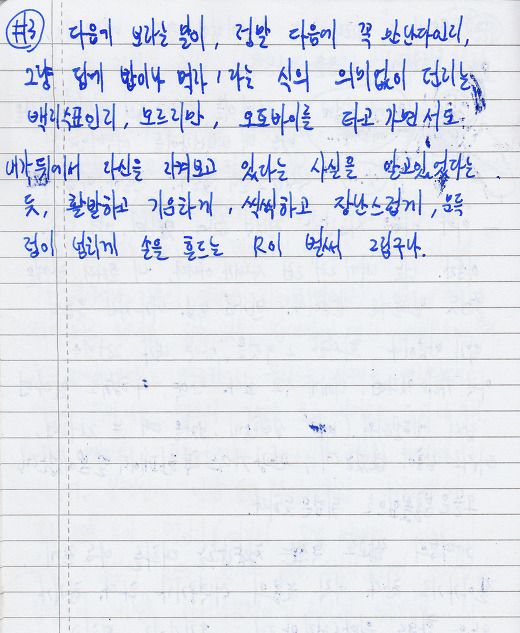 #3 다음에 보자는 말이, 정말 다음에 꼭 만난다인지,
그냥 담에 밥이나 먹자, 라는 식의 의미없이 던지는
백지수표인지, 모르지만, 오토바이를 타고 가면서도
내가 뒤에서 자신을 지켜보고 있다는 사실을 알고있었다는
듯, 활발하고 기운차게, 씩씩하고 장난스럽게,
넘치게 손을 흔드는 R이 벌써 그립구나.